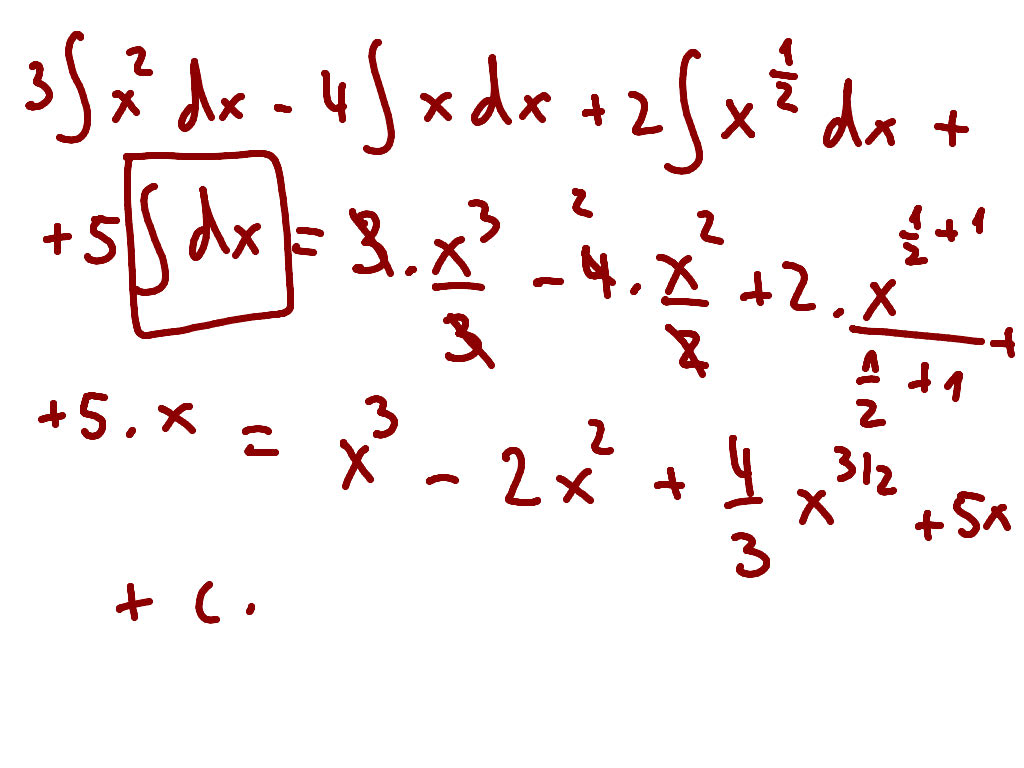 3∫x² dx - 4∫x dx + 2∫x^{1/2} dx +
+5 ∫dx = 3 · x³/3 - 4² · x²/2 + 2 · x^{1/2+1}/(1/2+1) +
+5 · x = x³ - 2x² + 4/3 x^{3/2} + 5x
+ c.